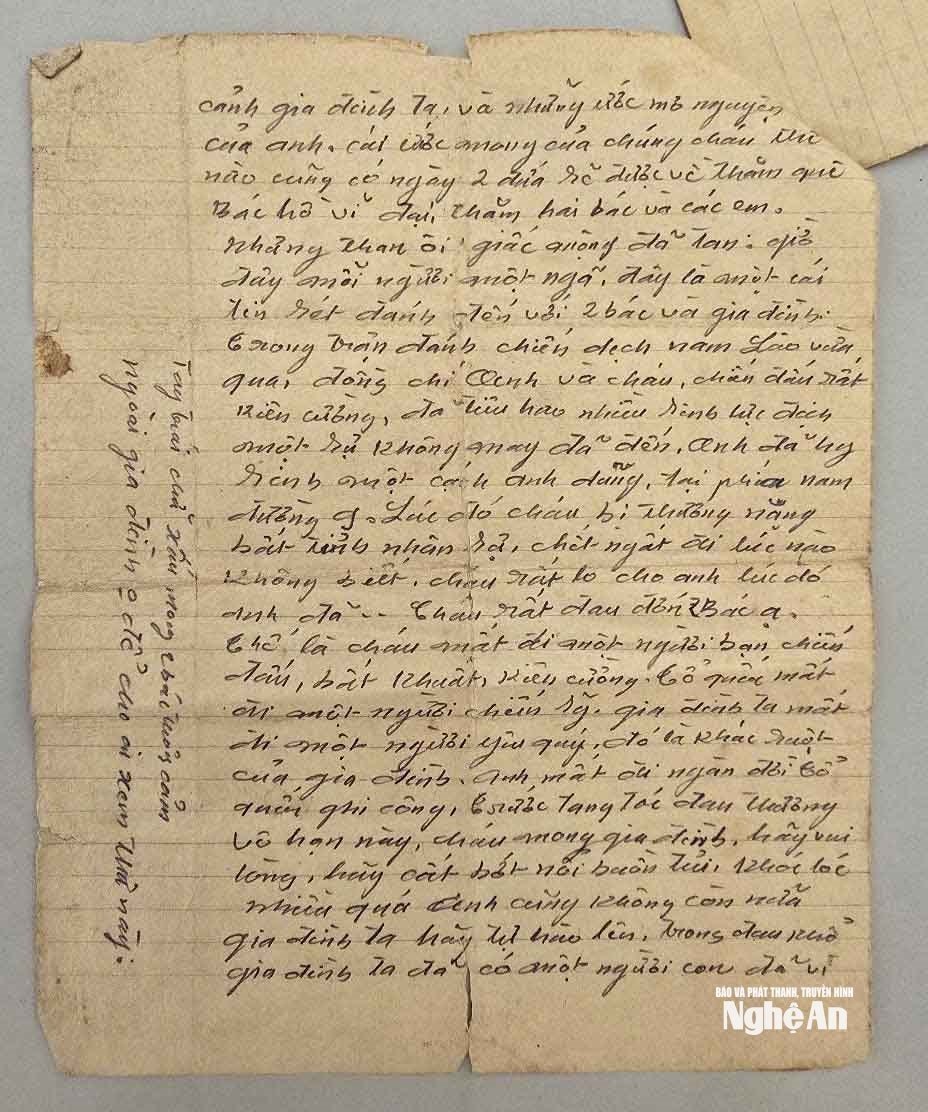 cảnh gia đình ta, và những ước mơ nguyện
của anh. cái ước mong của chúng cháu thế
nào cũng có ngày 2 đứa sẽ được về thăm quê
Bác hồ vĩ đại, thăm hai bác và các em.
Nhưng than ôi giấc mộng đã tan. giờ
đây mỗi người một ngã, đây là một cái
tin sét đánh đến với 2 bác và gia đình.
Trong trận đánh chiến dịch nam Lào vừa
qua, đồng chí Oanh và cháu, chiến đấu rất
kiên cường, đã tiêu hao nhiều sinh lực địch
một sự không may đã đến. Anh đã hy
sinh một cách anh dũng, tại phía nam
đường 9. Lúc đó cháu bị thương nặng
bất tỉnh nhân sự, chết ngất đi lúc nào
không biết. cháu rất lo cho anh lúc đó
anh đã -- Cháu rất đau đớn 2 Bác ạ.
Thế là cháu mất đi một người bạn chiến
đấu, bất khuất, kiên cường. Tổ quốc mất
đi một người chiến sỹ. gia đình ta mất
đi một người yêu quý, đó là khúc ruột
của gia đình. anh mất đi ngàn đời Tổ
quốc ghi công, Trước tang tóc đau thương
vô hạn này, cháu mong gia đình, hãy vui
lòng, hãy cắt bớt nỗi buồn tủi. khóc lóc
nhiều quá Oanh cũng không còn nữa
gia đình ta hãy tự hào lên, trong đau khổ
gia đình ta đã có một người con đã vì
Tay trái chữ xấu mong 2 bác thông cảm
ngoài gia đình ra để cho ai xem thư này.
BÁO VÀ PHÁT THANH, TRUYỀN HÌNH
Nghệ An